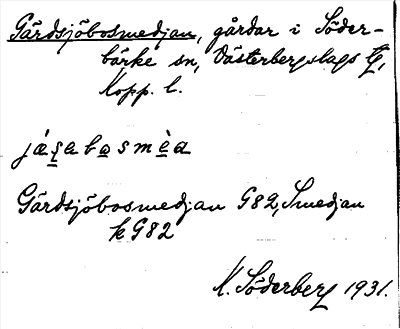 Gärdsjöbosmedjan, gårdar i Söder-
bärke sn, Västerbergslags tg,
Kopp. l.
jásabosmèa
Gärdsjöbosmedjan G82, Smedjan
k G82
K. Söderberg 1931.